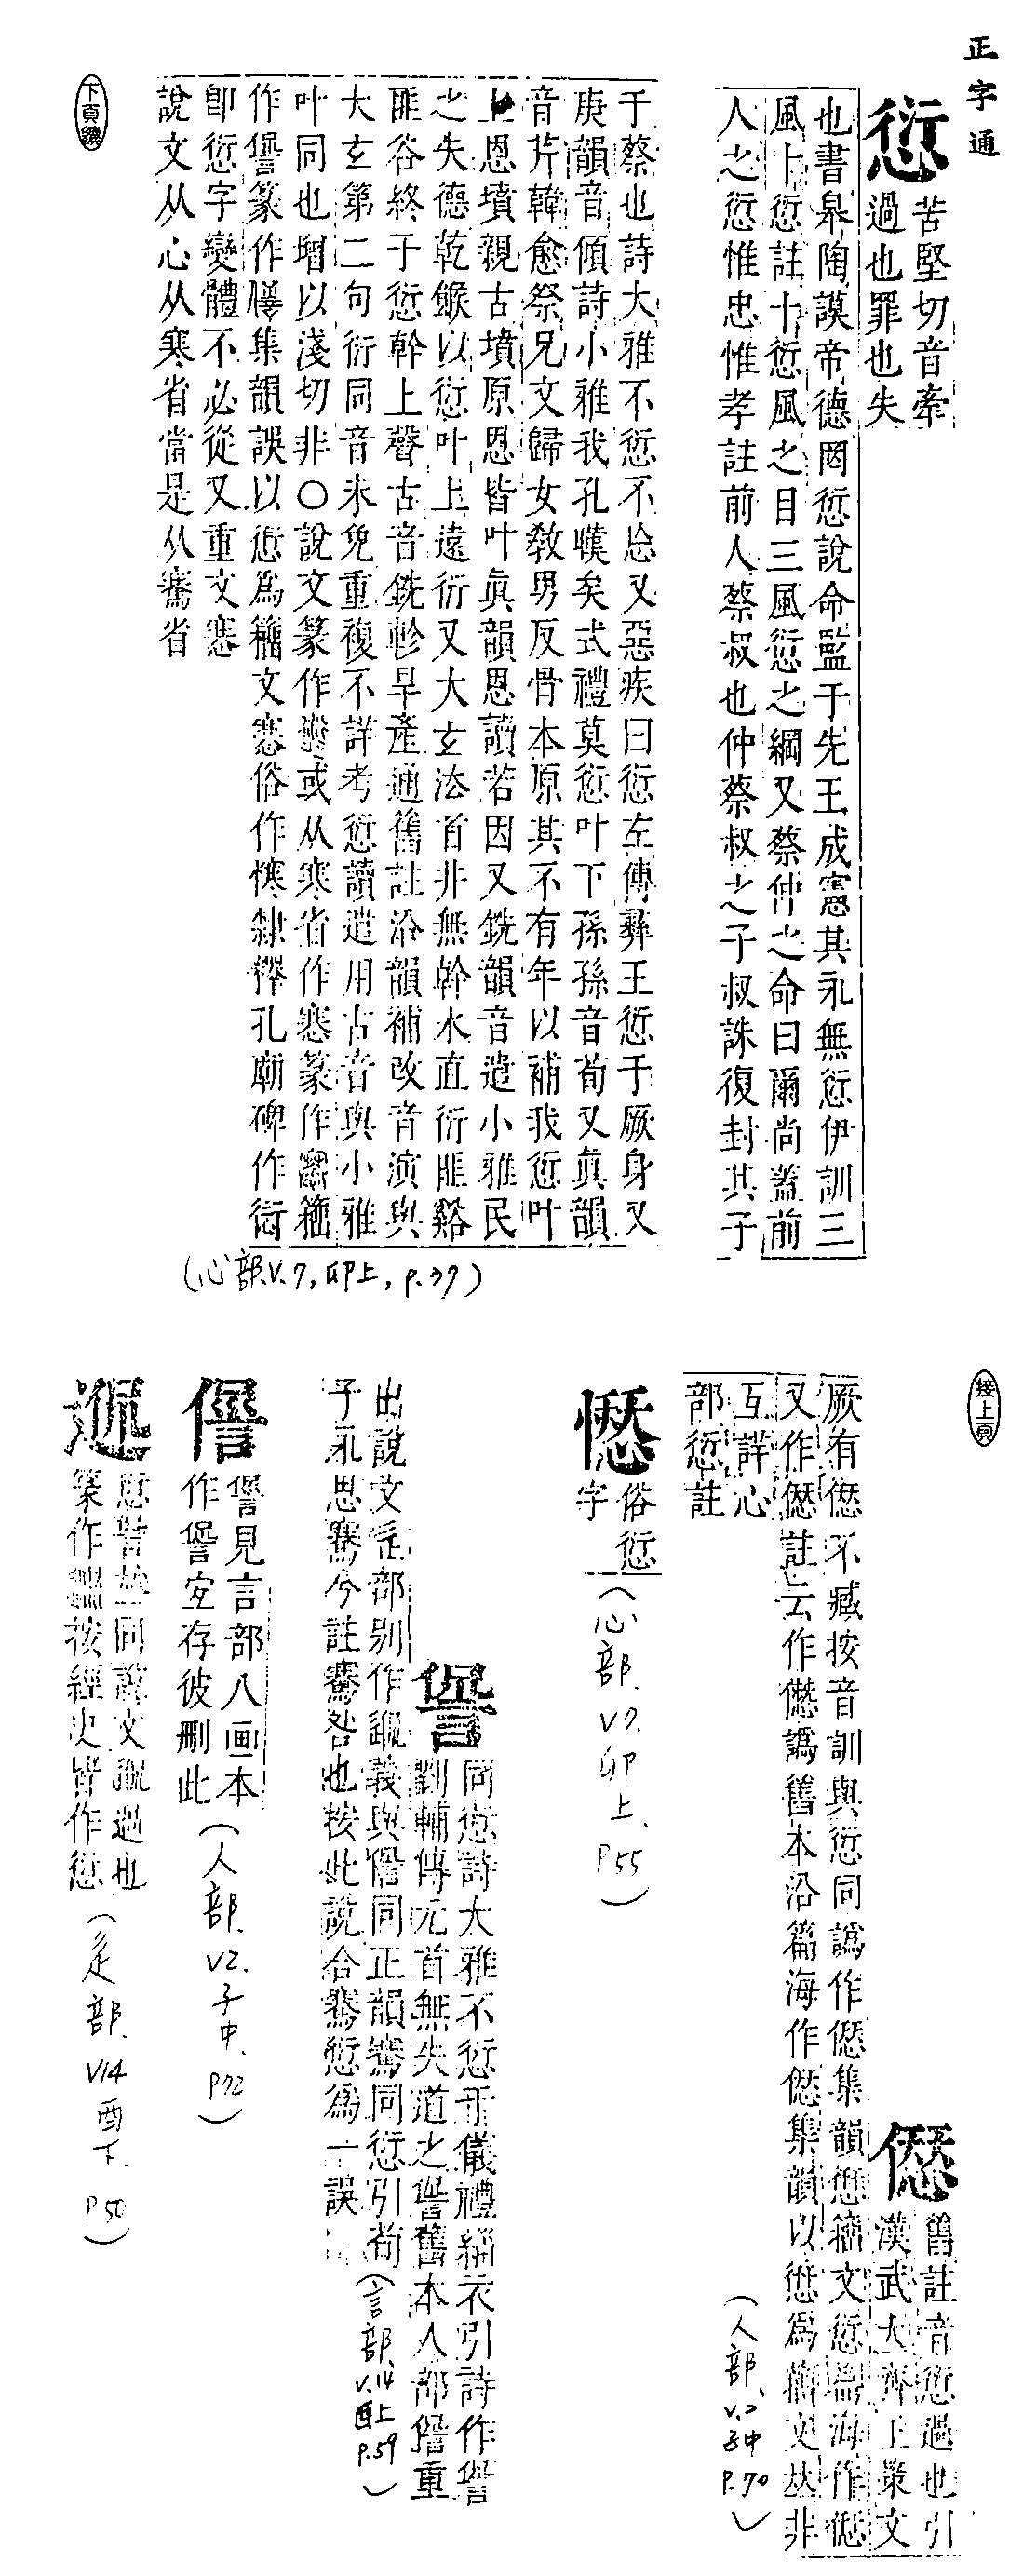 正字通
愆
苦堅切音牽
過也罪也失
也書皋陶謨帝德罔愆說命監于先王成憲其永無愆伊訓三
風十愆註十愆風之目三風愆之綱又蔡仲之命曰爾尚蓋前
人之愆惟忠惟孝註前人蔡叔也仲蔡叔之子叔誅復封其子
于蔡也詩大雅不愆不忘又惡疾曰愆左傳彝王愆于厥身又
庚韻音傾詩小雅我孔熯矣式禮莫愆叶下孫孫音荀又眞韻
音芹韓愈祭兄文歸女敎男反骨本原其不有年以補我愆叶
上恩墳親古墳原恩皆叶眞韻恩讀若因又銑韻音遣小雅民
之失德乾餱以愆叶上遠衍又大玄法首井無幹水直衍匪谿
匪谷終于愆幹上聲古音銑軫旱產通舊註沿韻補改音演與
大玄第二句衍同音未免重複不詳考愆讀遣用古音與小雅
叶同也增以淺切非○說文篆作或从寒省作㥶篆作籀
作諐篆作集韻誤以愆爲籀文㥶俗作隸釋孔廟碑作
卽愆字變體不必從又重文㥶
說文从心从寒省當是从騫省
下頁續
(心部.V.7,卯上,p.37)
接上頁
僁
舊註音愆過也引
漢武大齊上策文
厥有僁不臧按音訓與愆同譌作僁集韻愆籀文愆篇海作僁
又作註云作譌舊本沿篇海作僁集韻以愆爲籀文从非
互詳心
部愆註
(人部、V.2子中P.70)
俗愆
字
(心部.V7.卯上.P55)
諐
同愆詩大雅不愆于儀禮緇衣引詩作諐
劉輔傳元首無失道之諐舊本人部重
出說文辵部別作義與同正韻騫同愆引荀
子永思騫兮註騫咎也按此說合騫愆爲一誤
(言部、V.14酉上P.59)
諐見言部八画本
作諐宜存彼刪此
(人部.V2.子中.P72)
愆諐並同說文過也
篆作按經史皆作愆
(辵部.V14酉下.P50)